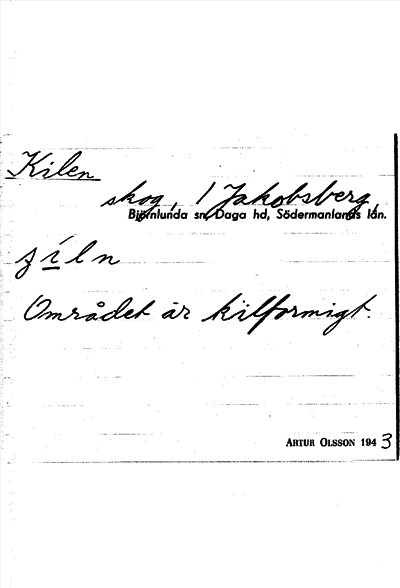 Kilen
skog, 1 Jakobsberg,
Björnlunda sn, Daga hd, Södermanlands län.
Området är kilformigt.
ARTUR OLSSON 1943